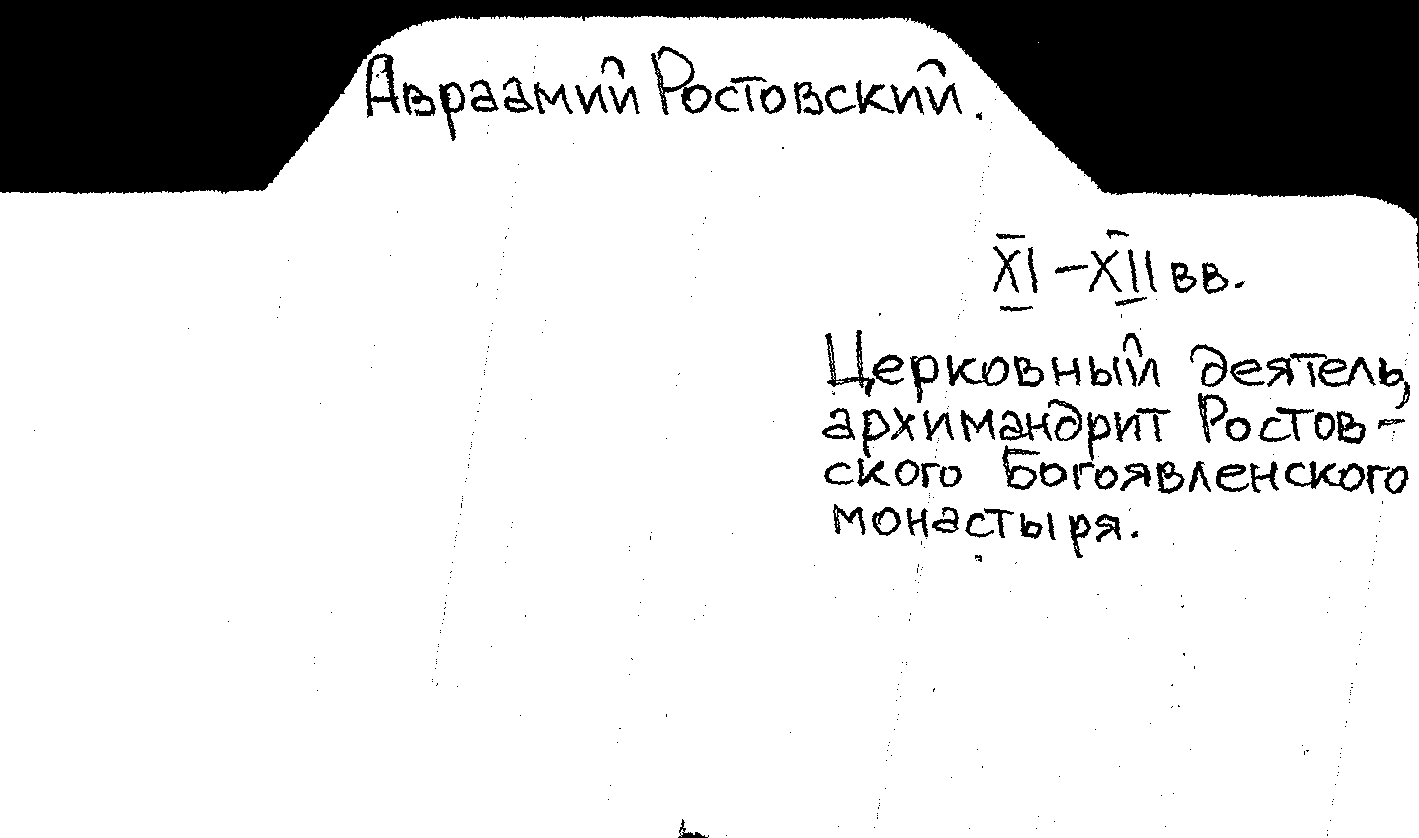 Авраамий Ростовский.
XI – XII вв.
Церковный деятель,
архимандрит Ростов-
ского Богоявленского
монастыря.